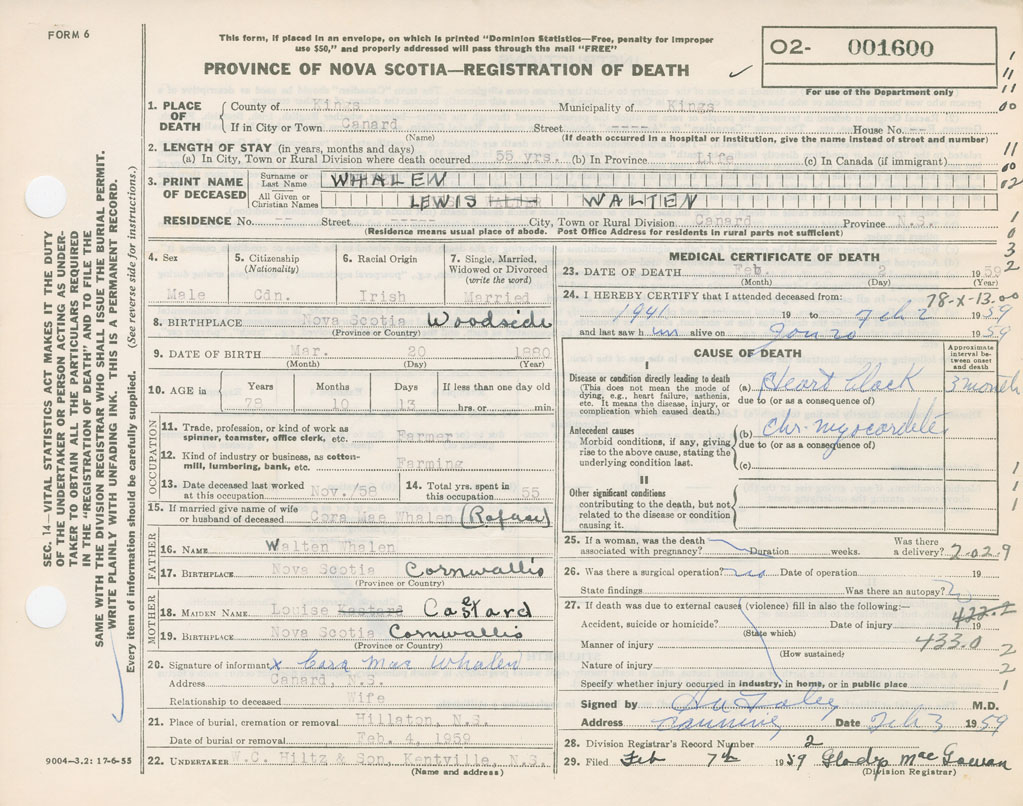 FORM 6
This form, if placed in an envelope, on which is printed "Dominion Statistics—Free, penalty for improper
use $50," and properly addressed will pass through the mail "FREE"
PROVINCE OF NOVA SCOTIA—REGISTRATION OF DEATH
02- 001600
For use of the Department only
1. PLACE OF DEATH
County of Kings Municipality of Kings
If in City or Town Canard Street ---- House No. --
(Name) (If death occurred in a hospital or institution, give the name instead of street and number)
2. LENGTH OF STAY (in years, months and days)
(a) In City, Town or Rural Division where death occurred 55 yrs. (b) In Province Life (c) In Canada (if immigrant)
3. PRINT NAME OF DECEASED
Surname or Last Name WHALEN
All Given or Christian Names LEWIS WALTEN
RESIDENCE No. -- Street ----- City, Town or Rural Division Canard Province N.S.
(Residence means usual place of abode. Post Office Address for residents in rural parts not sufficient)
4. Sex Male
5. Citizenship (Nationality) Cdn.
6. Racial Origin Irish
7. Single, Married, Widowed or Divorced (write the word) Married
8. BIRTHPLACE Nova Scotia Woodside
(Province or Country)
9. DATE OF BIRTH Mar. 20 1880
(Month) (Day) (Year)
10. AGE in Years Months Days If less than one day old
78 10 13 hrs. or min.
OCCUPATION
11. Trade, profession, or kind of work as spinner, teamster, office clerk, etc. Farmer
12. Kind of industry or business, as cotton-mill, lumbering, bank, etc. Farming
13. Date deceased last worked at this occupation Nov./58
14. Total yrs. spent in this occupation 55
15. If married give name of wife or husband of deceased Cora Mae Whalen
FATHER
16. NAME Walten Whalen
17. BIRTHPLACE Nova Scotia Cornwallis
(Province or Country)
MOTHER
18. MAIDEN NAME Louise Castard
19. BIRTHPLACE Nova Scotia Cornwallis
(Province or Country)
20. Signature of informant x Cora Mae Whalen
Address Canard, N.S.
Relationship to deceased Wife
21. Place of burial, cremation or removal Hillaton, N.S.
Date of burial or removal Feb. 4, 1959
22. UNDERTAKER W.C. Hiltz & Son, Kentville, N.S.
(Name and address)
MEDICAL CERTIFICATE OF DEATH
23. DATE OF DEATH Feb. 2 1959
(Month) (Day) (Year)
78-X-13.00
24. I HEREBY CERTIFY that I attended deceased from:
1941 19 to Feb 2 1959
and last saw him alive on Jan 20 1959
CAUSE OF DEATH
Approximate interval between onset and death
I
Disease or condition directly leading to death
(This does not mean the mode of dying, e.g., heart failure, asthenia, etc. It means the disease, injury, or complication which caused death.)
(a) Heart Block 3 month
due to (or as a consequence of)
Antecedent causes
Morbid conditions, if any, giving rise to the above cause, stating the underlying condition last.
(b) chr. myocarditis
due to (or as a consequence of)
(c)
II
Other significant conditions
contributing to the death, but not related to the disease or condition causing it.
25. If a woman, was the death associated with pregnancy? Duration weeks. Was there a delivery?
2.02.9
26. Was there a surgical operation? no Date of operation 19
State findings Was there an autopsy?
27. If death was due to external causes (violence) fill in also the following:—
422.2
Accident, suicide or homicide? Date of injury 19
(State which)
Manner of injury 433.0
(How sustained)
Nature of injury
Specify whether injury occurred in industry, in home, or in public place
Signed by M.D.
Address Canning Date Feb 3 1959
28. Division Registrar's Record Number 2
29. Filed Feb 7th 1959 Gladys MacGowan
(Division Registrar)
SEC. 14—VITAL STATISTICS ACT MAKES IT THE DUTY
OF THE UNDERTAKER OR PERSON ACTING AS UNDER-
TAKER TO OBTAIN ALL THE PARTICULARS REQUIRED
IN THE "REGISTRATION OF DEATH" AND TO FILE THE
SAME WITH THE DIVISION REGISTRAR WHO SHALL ISSUE THE BURIAL PERMIT.
WRITE PLAINLY WITH UNFADING INK. THIS IS A PERMANENT RECORD.
Every item of information should be carefully supplied. (See reverse side for instructions.)
9004—3.2: 17-6-55